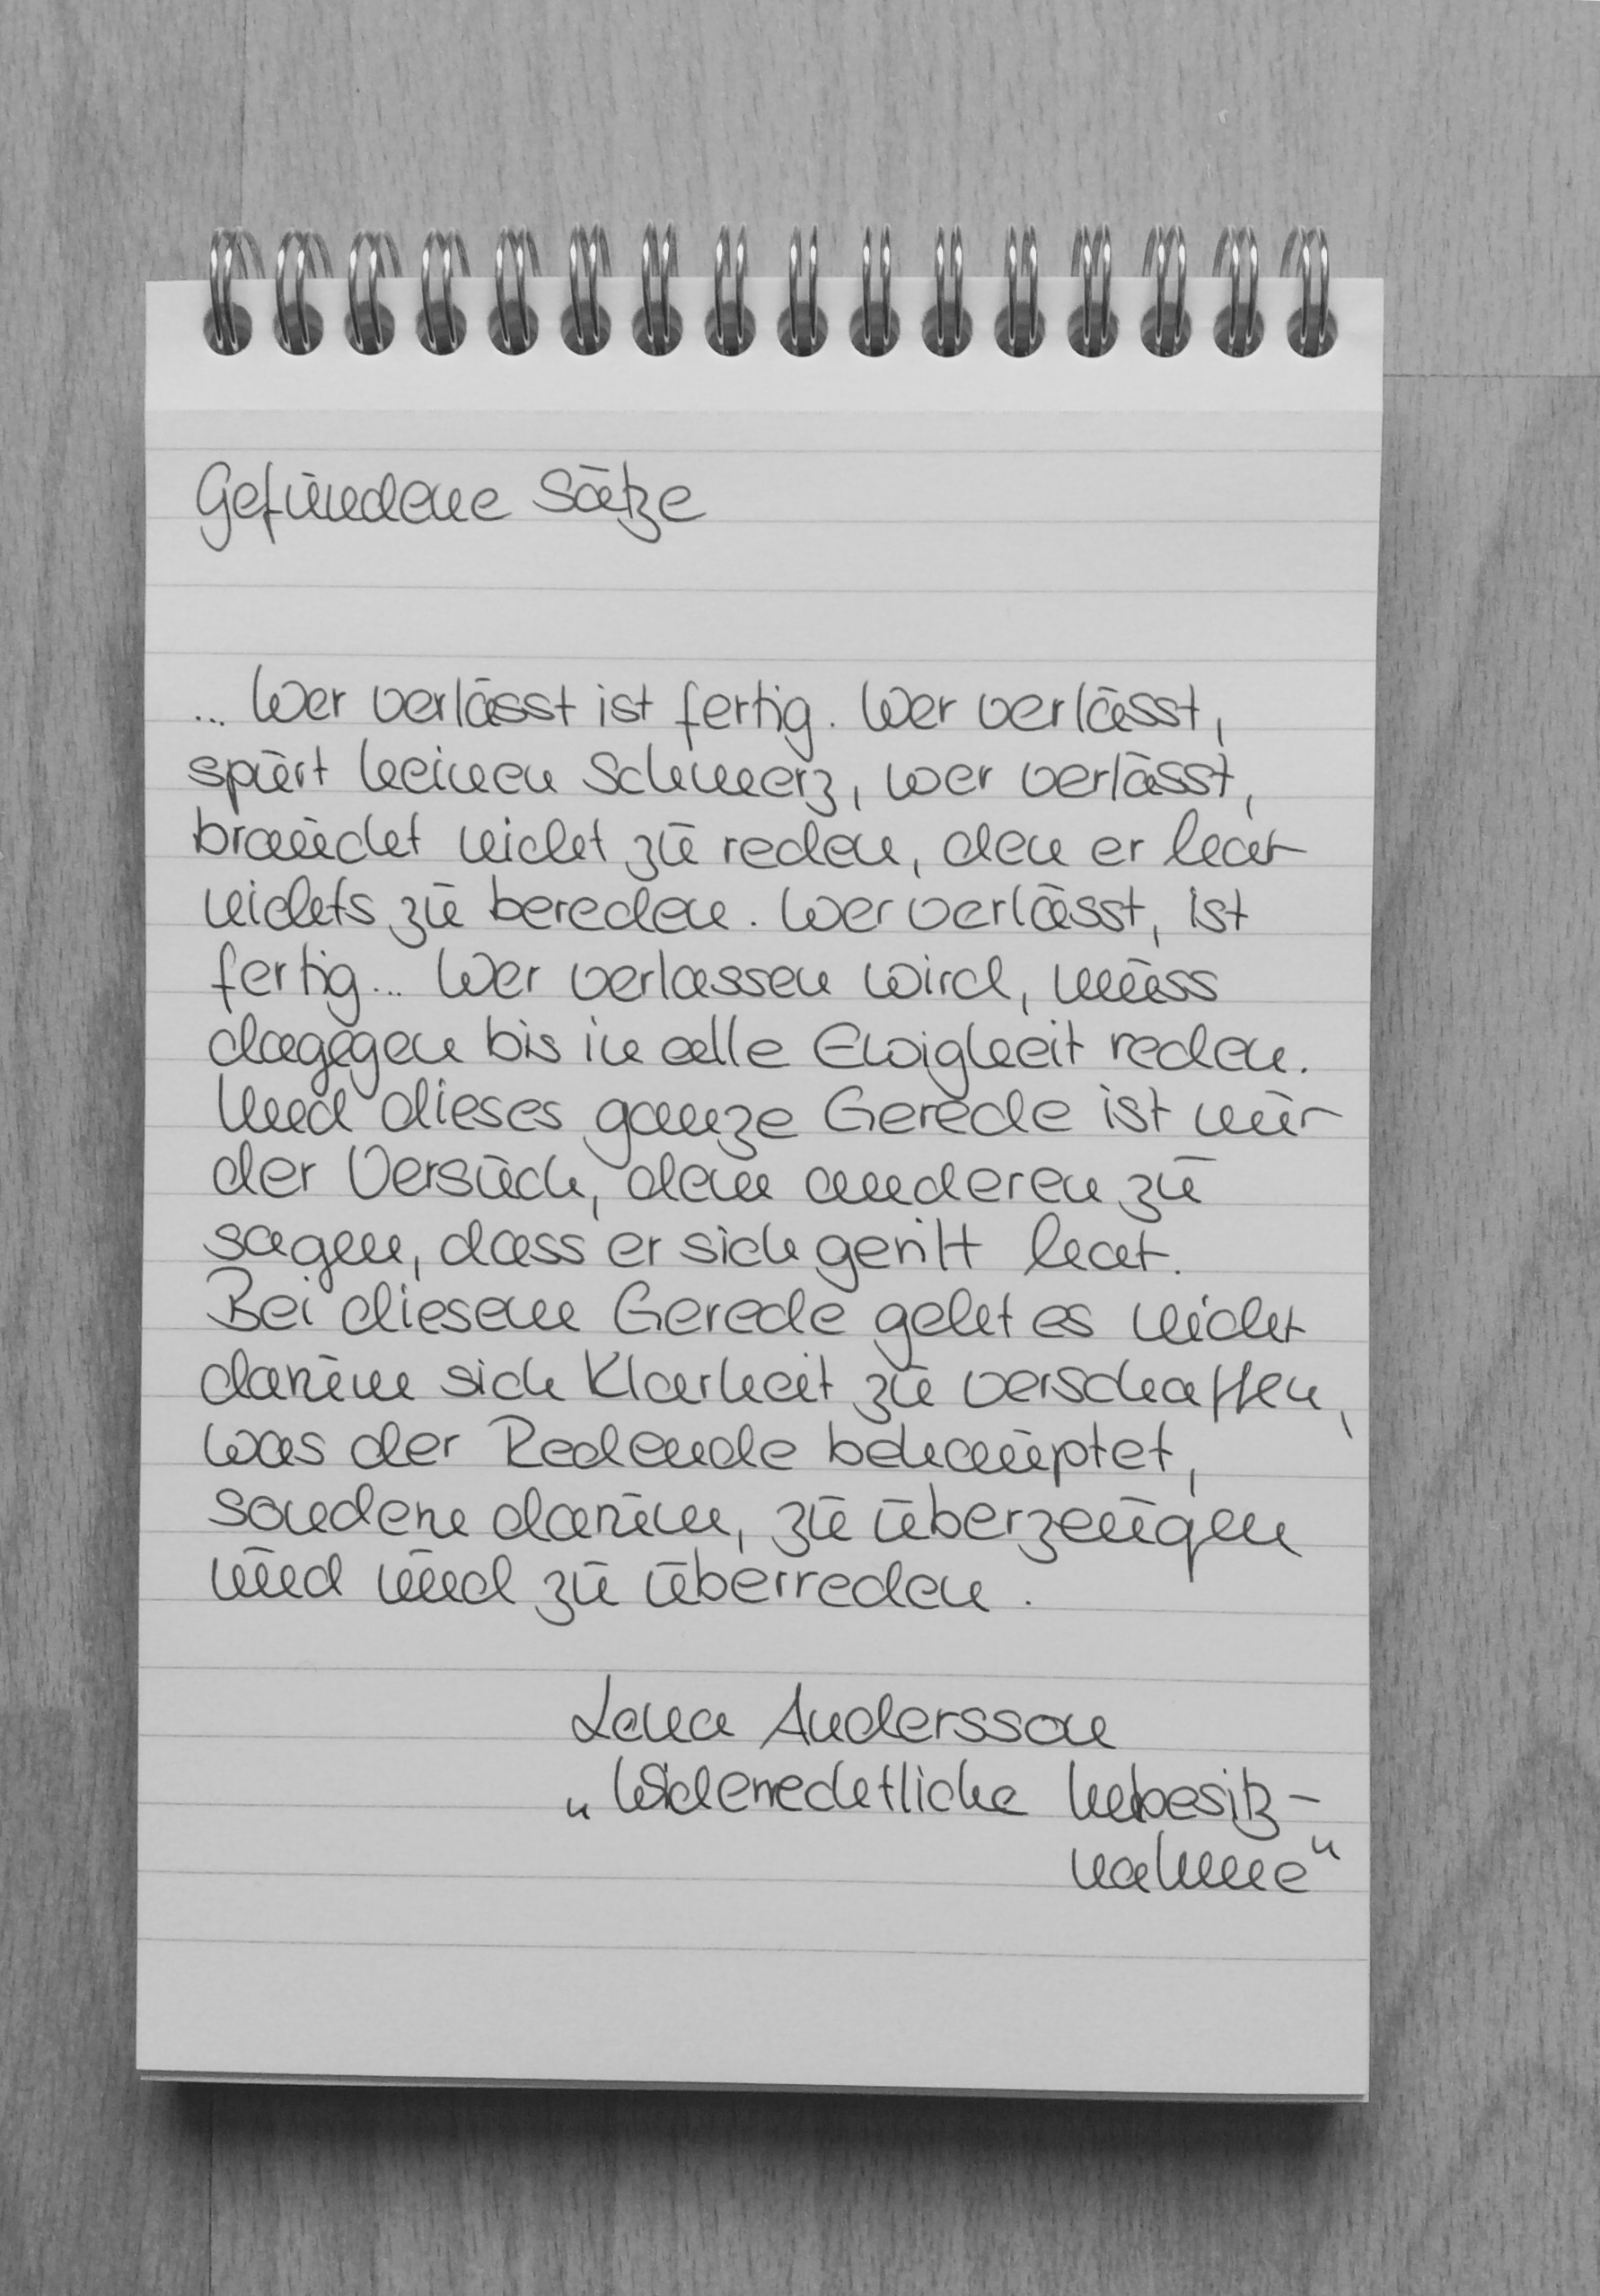 Gefundene Sätze
... Wer verlässt ist fertig. Wer verlässt,
spürt keinen Schmerz, wer verlässt,
braucht nicht zu reden, den er hat
nichts zu bereden. Wer verlässt, ist
fertig... Wer verlassen wird, muss
dagegen bis in alle Ewigkeit reden.
Und dieses ganze Gerede ist nur
der Versuch, dem anderen zu
sagen, dass er sich geirrt hat.
Bei diesem Gerede geht es nicht
darum sich Klarheit zu verschaffen,
was der Redende behauptet,
sondern darum, zu überzeugen
und und zu überreden.
Lena Andersson
„Widerrechtliche Inbesitz-
nahme“